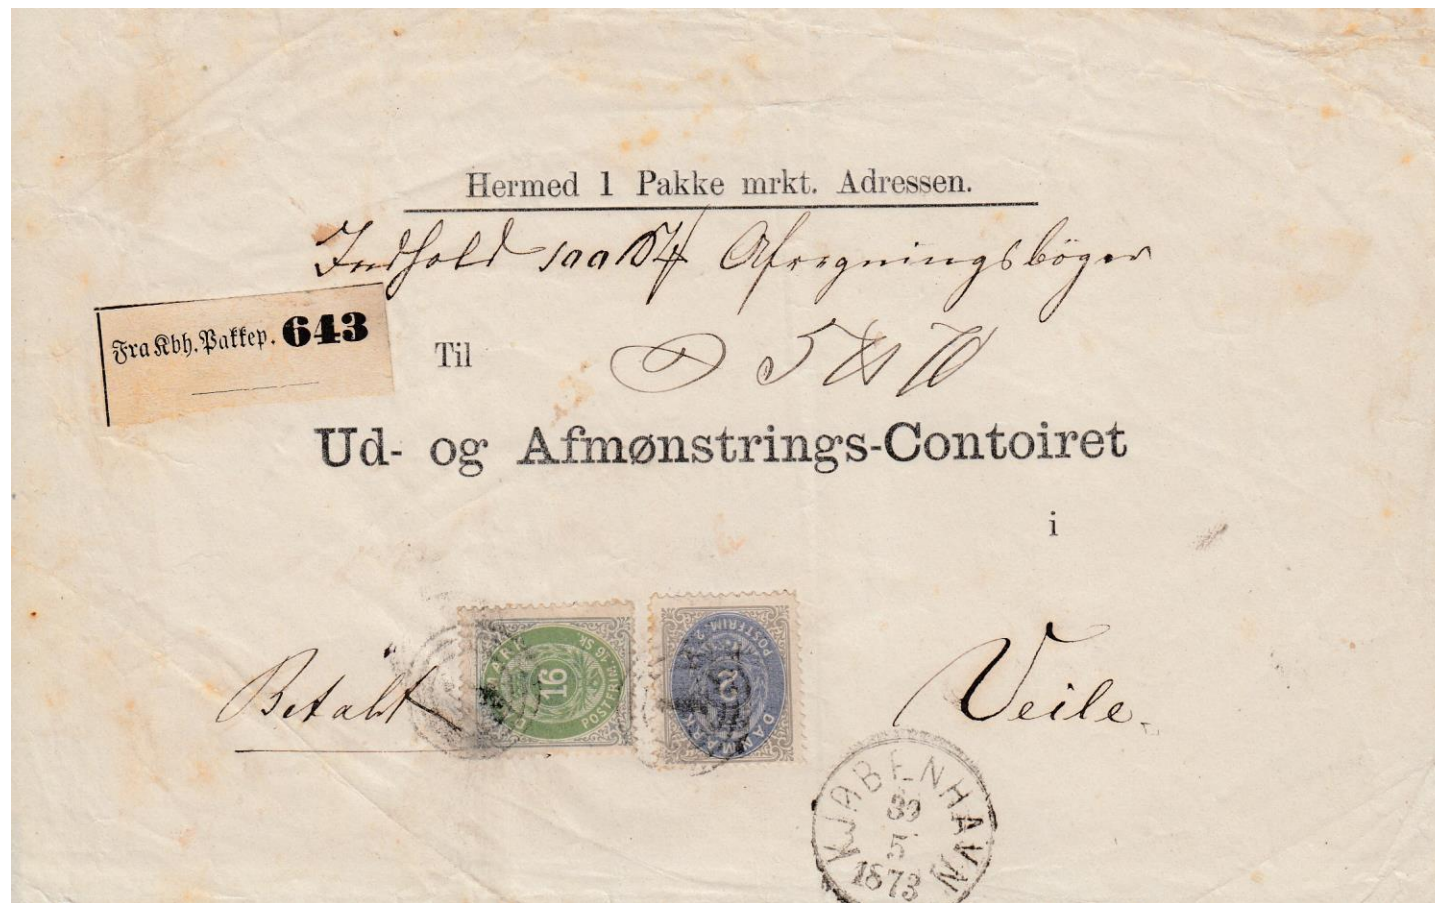 Hermed 1 Pakke mrkt. Adressen.
Indhold Afregningsbøger
Fra Kbh. Pakkep. 643
Til
Ud- og Afmønstrings-Contoiret
i
Betalt
DANMARK POSTFRIM. 16 SK.
16
DANMARK POSTFRIM. 2
2
Veile.
KJØBENHAVN
30
5
1873